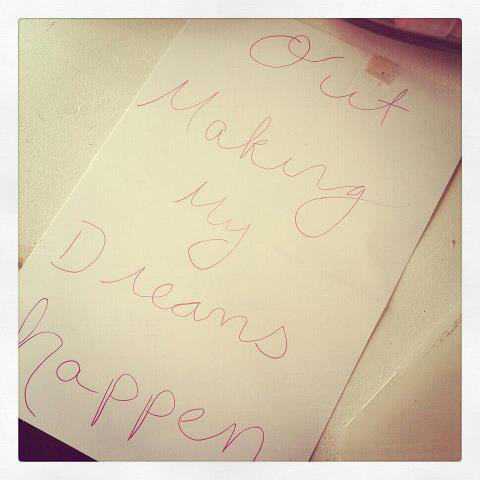 Out
Making
My
Dreams
happen